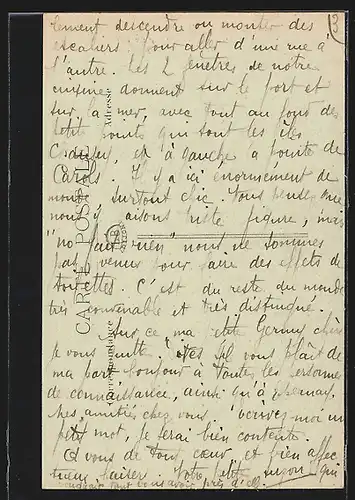 3
lement descendre ou monter des
escaliers pour aller d'une rue à
l'autre. Les 2 fenêtres de notre
cuisine donnent sur le port et
sur la mer, avec tout au fond des
petits points qui sont les îles
Chausey, et à gauche la pointe de
Carols. Il y a ici énormément de
monde, surtout chic. Vous pensez que
nous y faisons triste figure, mais
"ne fait rien" nous ne sommes
pas venus pour faire des effets de
toilettes. C'est du reste du monde
très convenable et très distingué.
Sur ce ma petite Germy chérie
je vous quitte. Dites s'il vous plaît de
ma part bonjour à toutes les personnes
de connaissance, ainsi qu'à
mes amitiés chez vous. Écrivez moi un
petit mot, je serai bien contente.
A vous de tout cœur, et bien affec
tueux baiser. Votre petite Suzon qui
voudrait tant vous avoir près d'elle.
CARTE POSTALE
Correspondance
Adresse